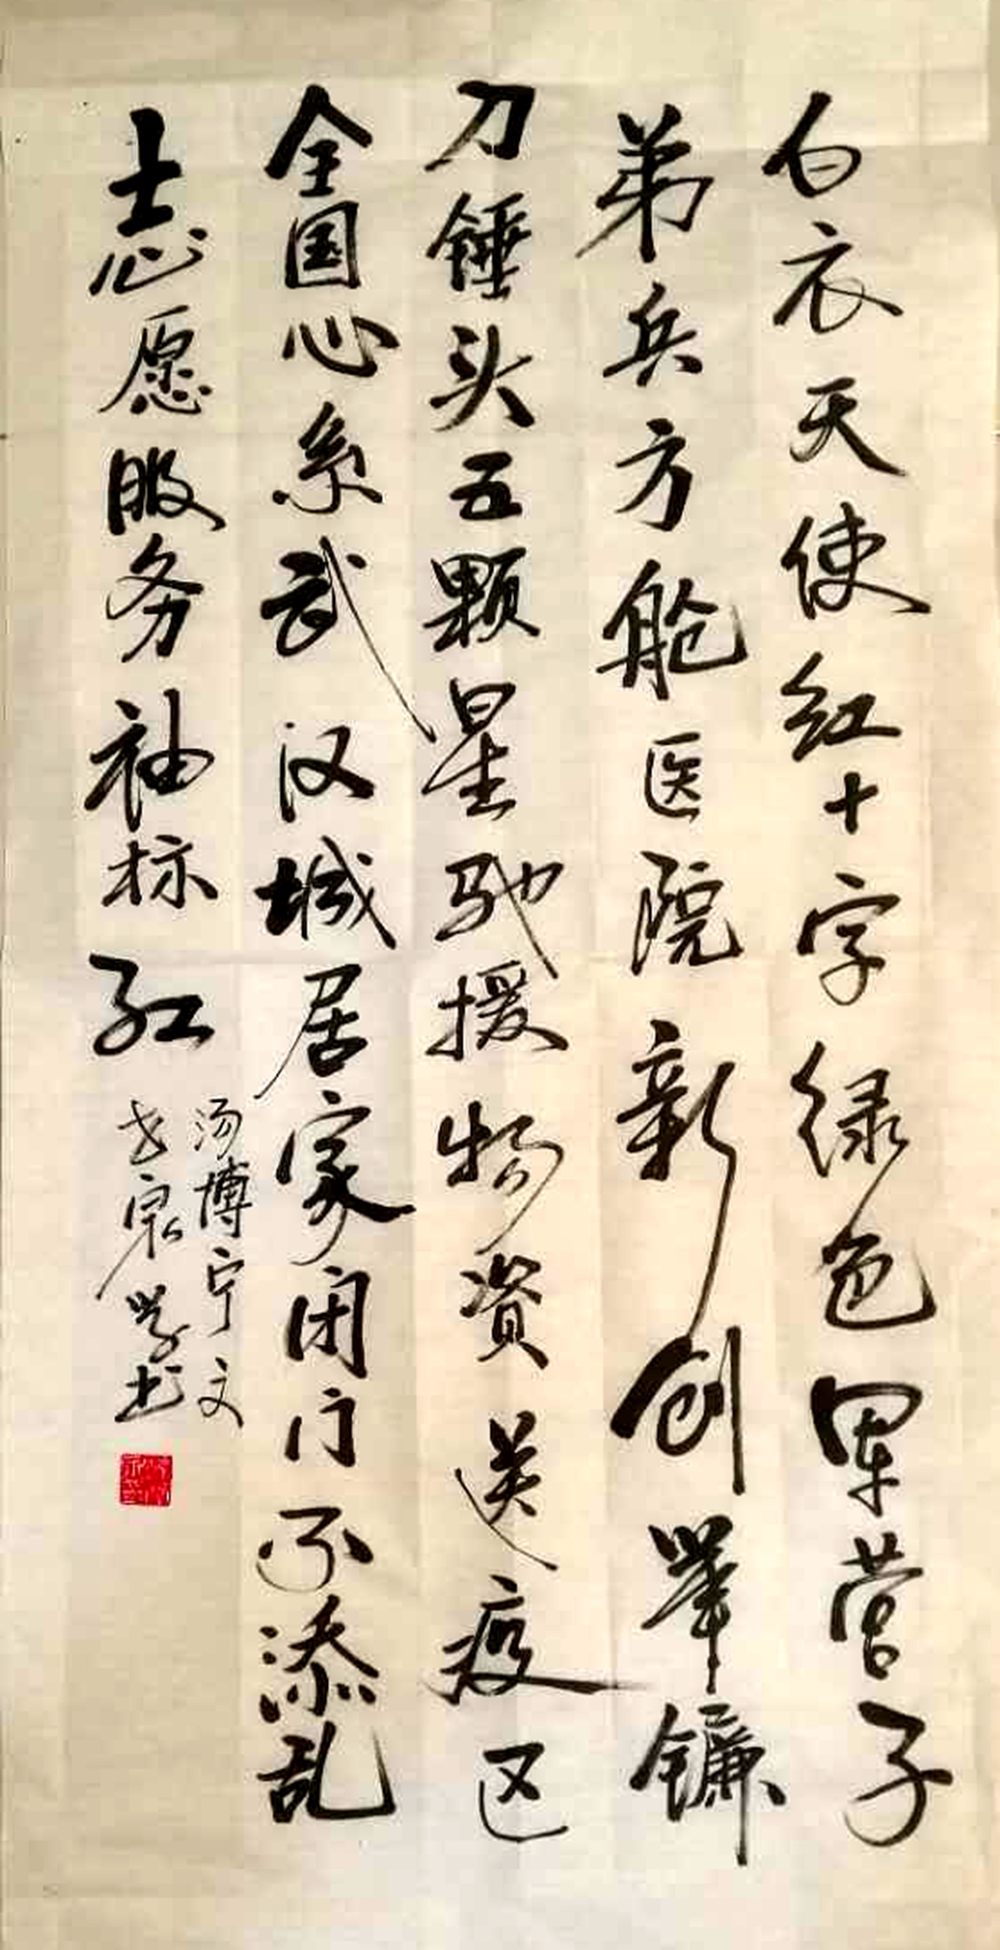 白衣天使红十字绿色军营子
弟兵方舱医院新创举镰
刀锤头五颗星驰援物资送疫区
全国心系武汉城居家闭门不添乱
志愿服务袖标红
汤博宁文
老泉学书